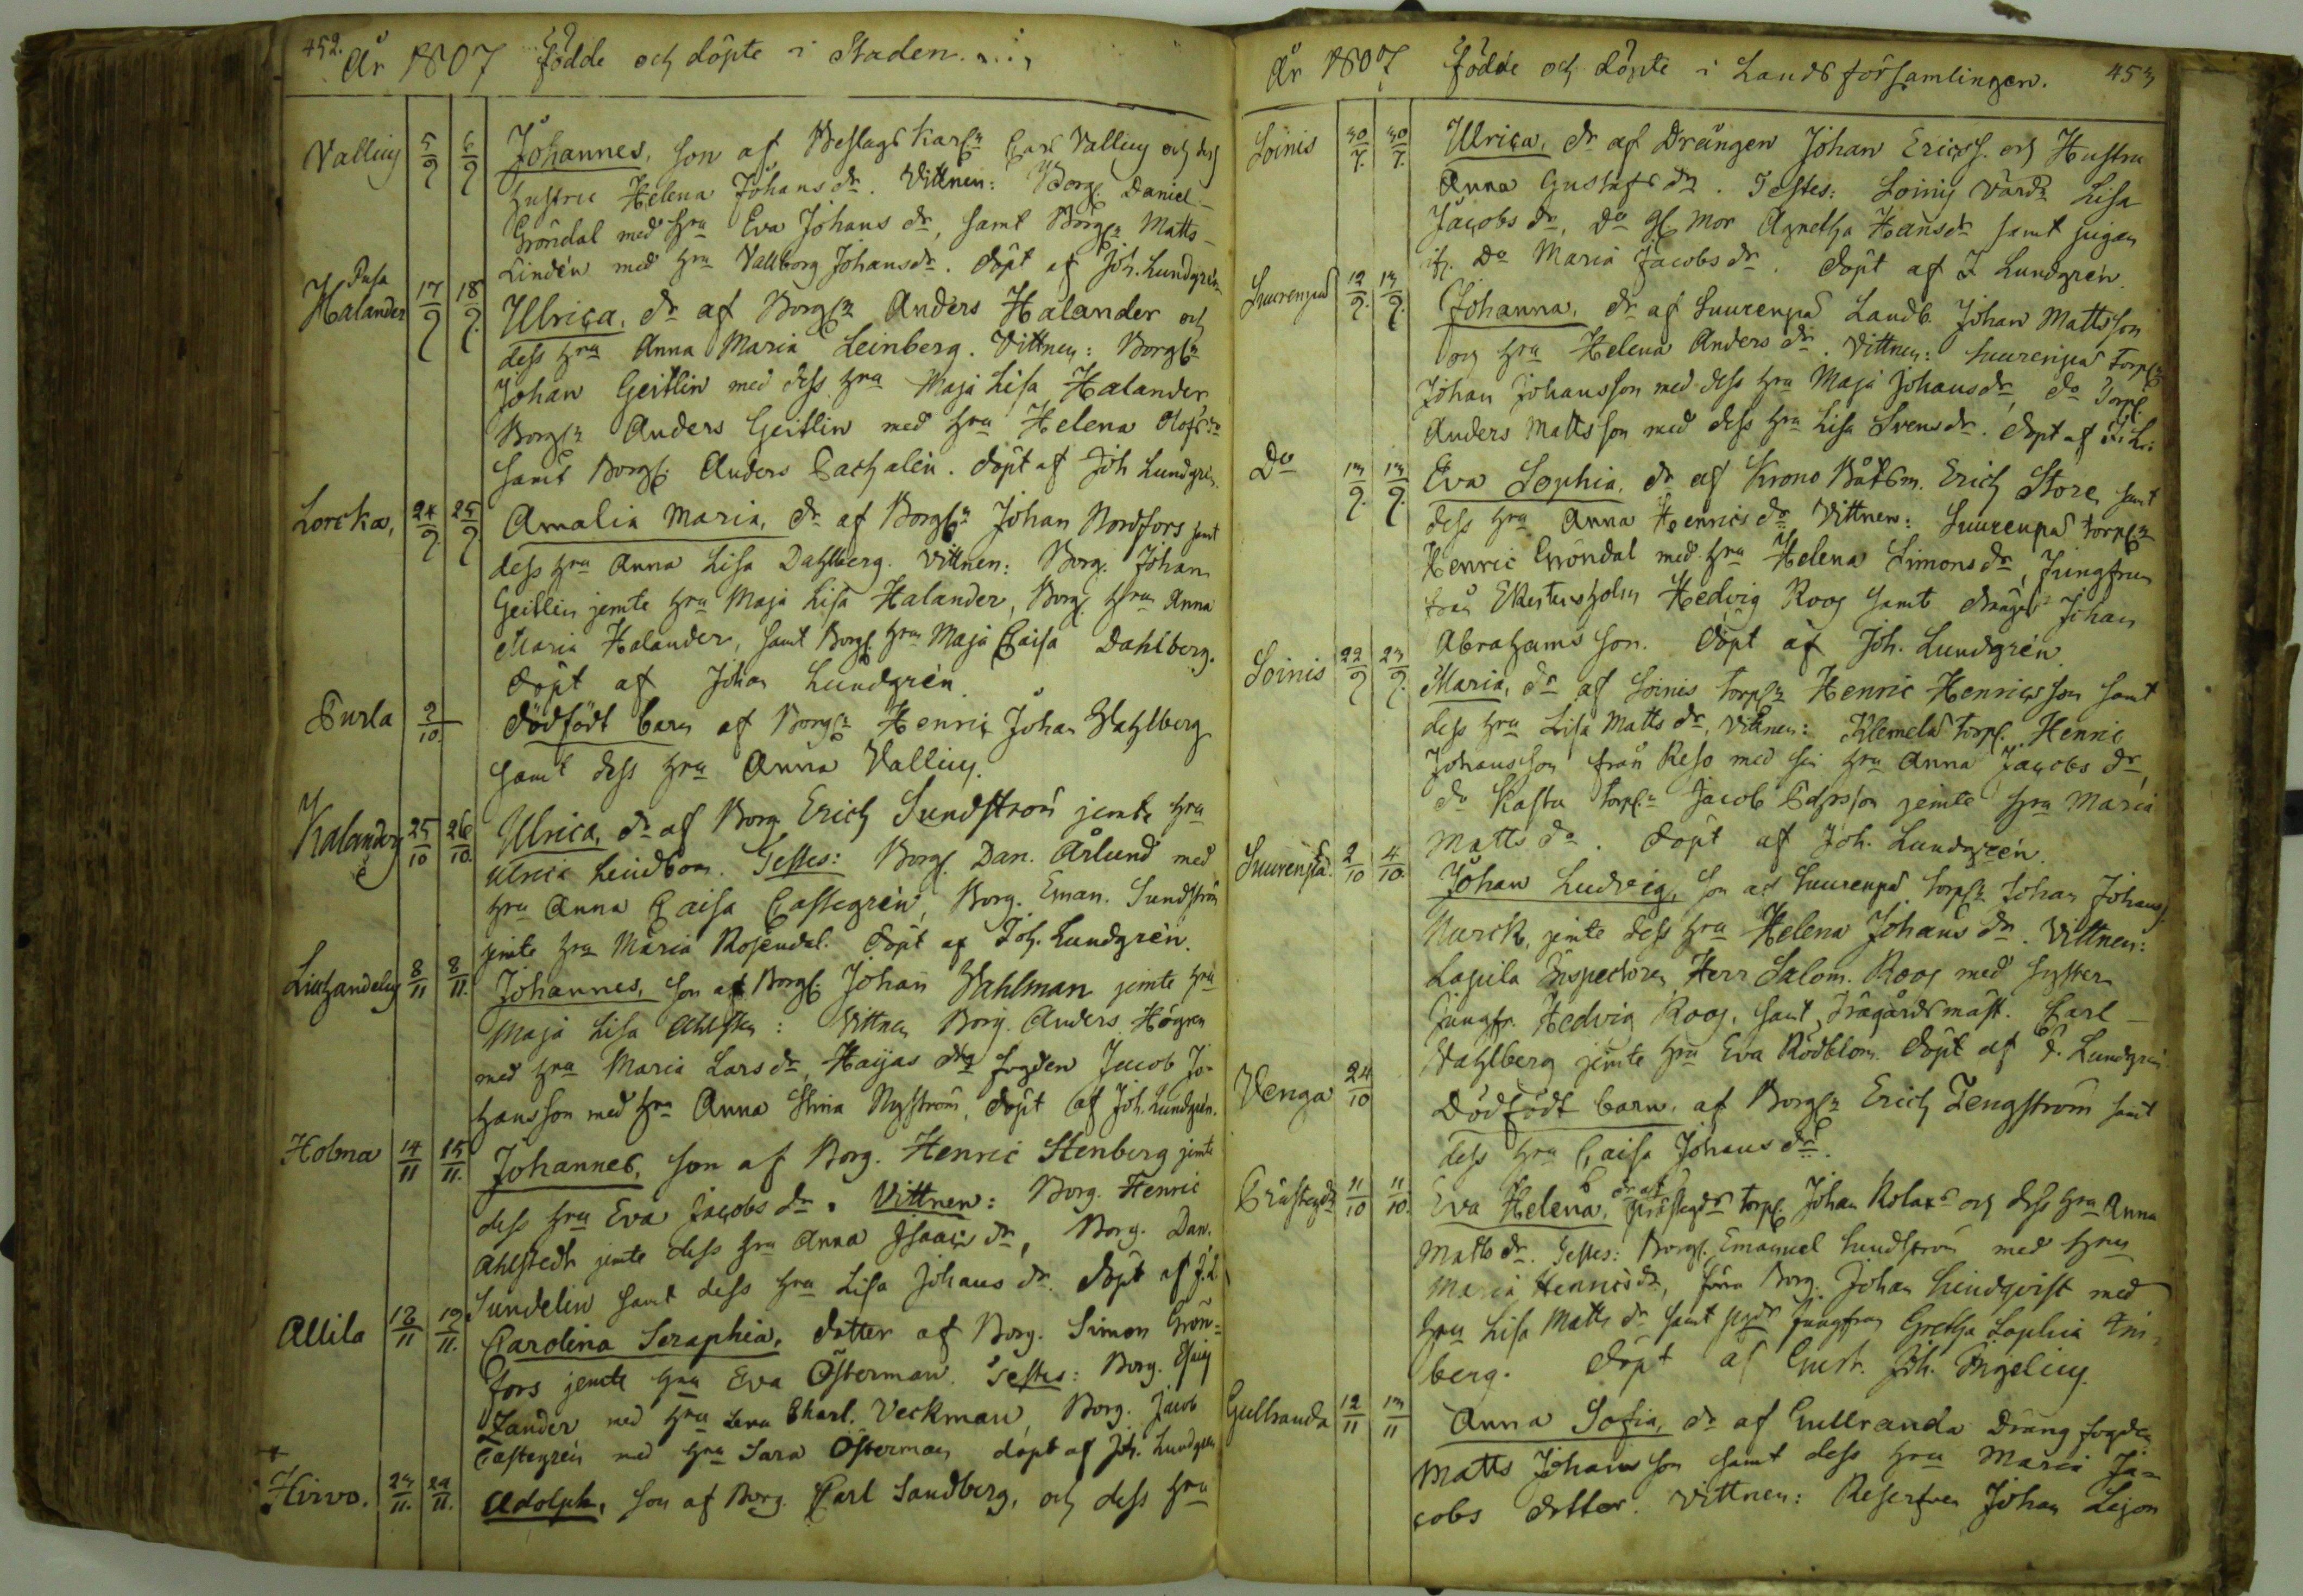 452. År 1807 födde och döpte i Staden.
Vallius 5/9 6/9 Johannes, son af Beslags Karln Carl Vallius och dess
hustru Helena Johans dr. Vittnen: Borg. Daniel
Gröndal med hru Eva Johans dr, samt Borgn Matts
Lindén med hru Vallborg Johansdr. döpt af Joh. Lundgrén
Halander 17/9 18/9 Ulrica, dr af Borgn Anders Halander och
dess hru Anna Maria Leinberg. Vittnen: Borgn
Johan Geitlin med dess hru Maja Lisa Halander,
Borgn Anders Geitlin med hru Helena Olofs dr
samt Borg. Anders Pachalén. döpt af Joh Lundgrén.
Lorcka, 24/9 25/9 Amalia Maria, dr af Borgn Johan Nordfors samt
dess hru Anna Lisa Dahlberg. Vittnen: Borg. Johan
Geitlin jemte hru Maja Lisa Halander, Borg. hru Anna
Maria Halander, samt Borg. hru Maja Caisa Dahlberg.
döpt af Johan Lundgrén.
Purla 2/10 dödfödt barn af Borgn Henric Johan Wahlberg
samt dess hru Anna Vallius.
25/10 26/10 Ulrica, dr af Borg. Erich Sundström jemte hru
Ulrica Lindbom. Testes: Borg. Dan. Ärlund med
hru Anna Caisa Castegrén, Borg. Eman. Sundström
jemte hru Maria Rosendal. döpt af Joh. Lundgrén.
8/11 8/11 Johannes, son af Borg. Johan Wahlman jemte hru
Maja Lisa Ahlsten: Vittnen Borg. Anders Högren
med hru Maria Lars dr, Haijas fogden Jacob Jo-
hansson med hru Anna Stina Nyström, döpt af Joh. Lundgrén.
Holma 14/11 15/11 Johannes, son af Borg. Henric Stenberg jemte
dess hru Eva Jacobs dr. Vittnen: Borg. Henric
Ahlstedt jemte dess hru Anna Isaacs dr, Borg. Dan.
Sundelin samt dess hru Lisa Johans dr. döpt af J. L.
Allila 18/11 19/11 Carolina Seraphia, dotter af Borg. Simon Grön-
fors jemte hru Eva Österman. Testes: Borg. Esaias
Zander med hru Lena Charl. Veckman, Borg. Jacob
Castegrén med hru Sara Österman döpt af Joh. Lundgrén
Hirvo. 23/11 24/11 Adolph, son af Borg. Carl Sandberg, och dess hru
År 1807 födde och döpte i Landsförsamlingen. 453
Soinis 30/7 30/7 Ulrica, dr af Drängen Johan Ericss. och Hustru
Anna Gustafs dr. Testes: Soinis Värdn Lisa
Jacobs dr, Do Gl. Mor Agnetha Hansdr samt pigan
ifr. Do Maria Jacobs dr. döpt af J Lundgrén.
Suurenpä 12/9 13/9 Johanna, dr af Suurenpä Landb. Johan Mattsson
och hru Helena Anders dr. Vittnen: Suurenpä torpn
Johan Johansson med dess hru Maja Johansdr, do Torp.
Anders Mattsson med dess hru Lisa Svensdr. döpt af J. L.
Do 13/9 13/9 Eva Sophia, dr af Krono Båtsm. Erich Store, samt
dess hru Anna Henrics dr Vittnen: Suurenpä torpn
Henric Gröndal med hru Helena Simons dr, Jungfrun
från Hedvig Roos samt drängen Johan
Abrahamsson. döpt af Joh. Lundgrén.
Soinis 22/9 23/9 Maria, dr af Soinis torpn Henric Henricsson samt
dess hru Lisa Matts dr, Vittnen: Klemela torp. Henric
Johansson från Reso med sin hru Anna Jacobs dr,
do Kasta torpn Jacob jemte hru Maria
Matts dr. döpt af Joh. Lundgrén.
Suurenpä 2/10 4/10 Johan Ludvig, son af Suurenpä torpn Johan Johanss.
Nurck, jemte dess hru Helena Johans dr. Vittnen:
Lapila Inspectoren Herr Salom. Roos med syster
Jungfr. Hedvig Roos, samt Trägårdsmäst. Carl
Wahlberg jemte hru Eva Rödblom. döpt af J. Lundgrén
Venga 24/10 Dödfödt barn, af Borgn Erich Zengström samt
dess hru Caisa Johans dr.
11/10 11/10 Eva Helena, dr af torp. Johan Rolax och dess hru Anna
Matts dr. Testes: Borg. Emanuel Sundström med hru
Maria Henricsdr, Borg. Johan Lindqvist med
hru Lisa Matts dr samt Jungfrun Gretha Sophia
berg. döpt af Gust. Joh. Ingelius.
Gullranda 12/11 13/11 Anna Sofia, dr af Gullranda Dräng fogden
Matts Johansson samt dess hru Maria Ja-
cobs dotter. Vittnen: Reserfven Johan Lejon